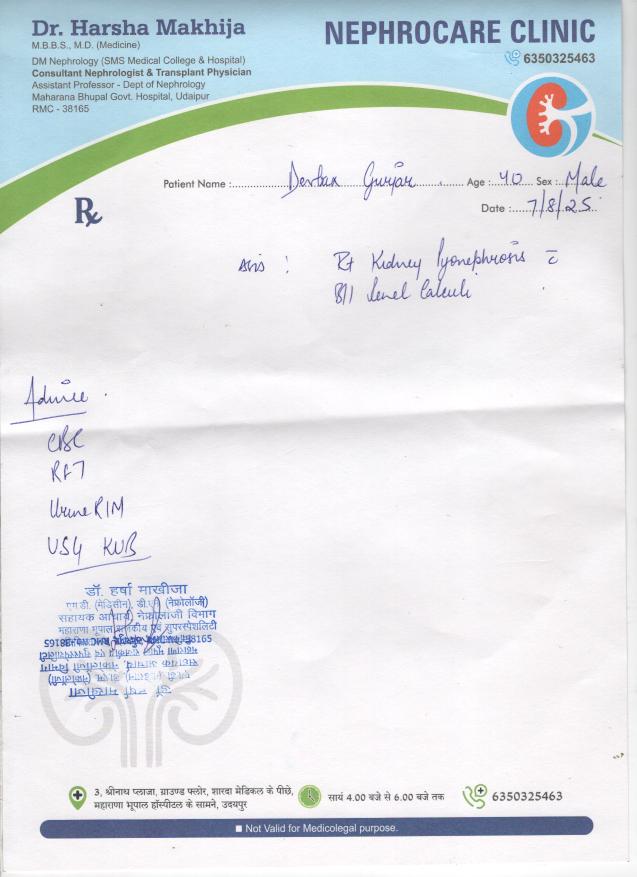 Dr. Harsha Makhija
M.B.B.S., M.D. (Medicine)
DM Nephrology (SMS Medical College & Hospital)
Consultant Nephrologist & Transplant Physician
Assistant Professor - Dept of Nephrology
Maharana Bhupal Govt. Hospital, Udaipur
RMC - 38165
NEPHROCARE CLINIC
6350325463
Patient Name : Gurjar Age : 40 Sex : Male
Date : 7/8/25
Rx
: Rt Kidney Pyonephrosis c̄
B/l Renal Calculi
Advice
CBC
RFT
Urine R/M
USG KUB
डॉ. हर्षा माखीजा
एम.डी. (मेडिसीन), डी.एम. (नेफ्रोलॉजी)
सहायक आचार्य नेफ्रोलॉजी विभाग
महाराणा भूपाल राजकीय एवं सुपरस्पेशलिटी
38165
3, श्रीनाथ प्लाजा, ग्राउण्ड फ्लोर, शारदा मेडिकल के पीछे,
महाराणा भूपाल हॉस्पीटल के सामने, उदयपुर
सायं 4.00 बजे से 6.00 बजे तक
6350325463
Not Valid for Medicolegal purpose.